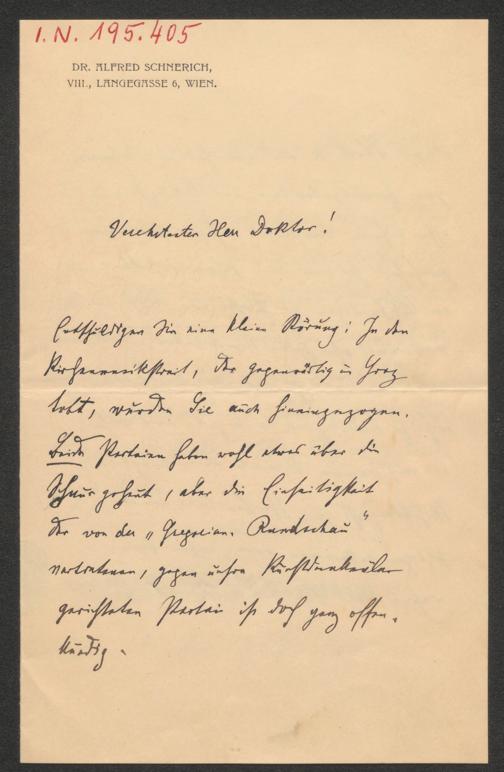 I.N. 195.405
DR. ALFRED SCHNERICH,
VIII., LANGEGASSE 6, WIEN.
Verehrtester Herr Doktor!
Entschuldigen Sie eine kleine Störung: In den
Kirchenmusikstreit, der gegenwärtig in Graz
tobt, wurden Sie auch hineingezogen.
Beide Parteien haben wohl etwas über die
Schnur gehaut, aber die Einseitigkeit
der von der „Gregorian. Rundschau"
vertretenen, gegen unsre Kunstdenkmäler
gerichteten Partei ist doch ganz offen-
kundig.